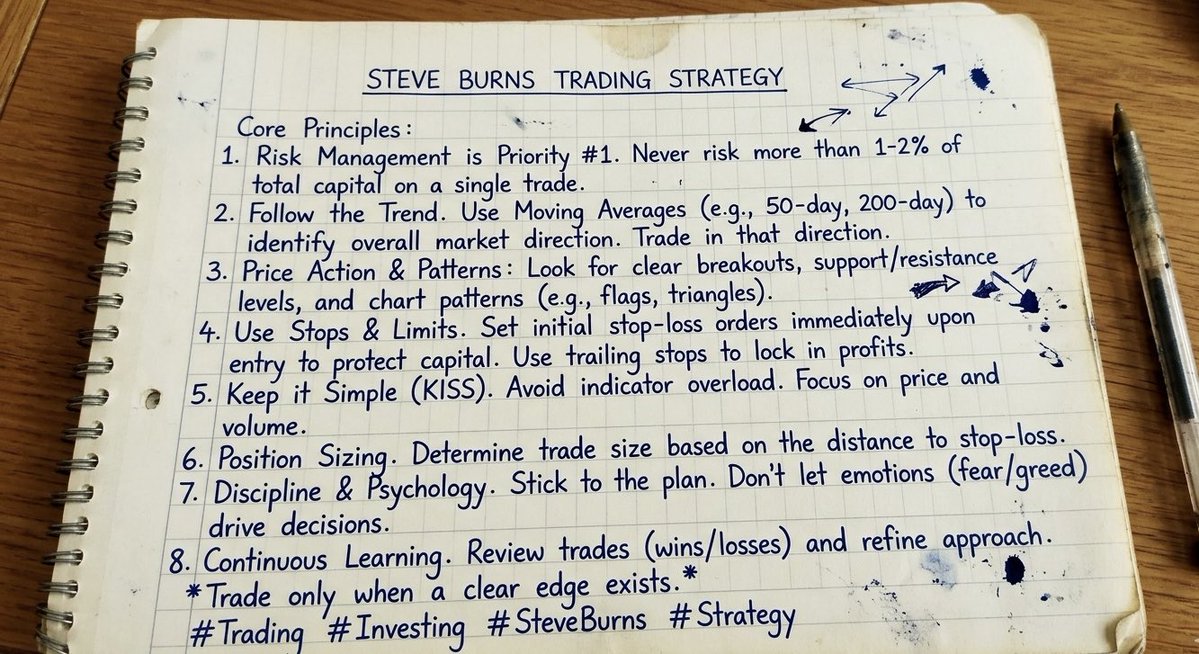 STEVE BURNS TRADING STRATEGY
Core Principles:
1. Risk Management is Priority #1. Never risk more than 1-2% of
total capital on a single trade.
2. Follow the Trend. Use Moving Averages (e.g., 50-day, 200-day) to
identify overall market direction. Trade in that direction.
3. Price Action & Patterns: Look for clear breakouts, support/resistance
levels, and chart patterns (e.g., flags, triangles).
4. Use Stops & Limits. Set initial stop-loss orders immediately upon
entry to protect capital. Use trailing stops to lock in profits.
5. Keep it Simple (KISS). Avoid indicator overload. Focus on price and
volume.
6. Position Sizing. Determine trade size based on the distance to stop-loss.
7. Discipline & Psychology. Stick to the plan. Don't let emotions (fear/greed)
drive decisions.
8. Continuous Learning. Review trades (wins/losses) and refine approach.
*Trade only when a clear edge exists.*
#Trading #Investing #SteveBurns #Strategy